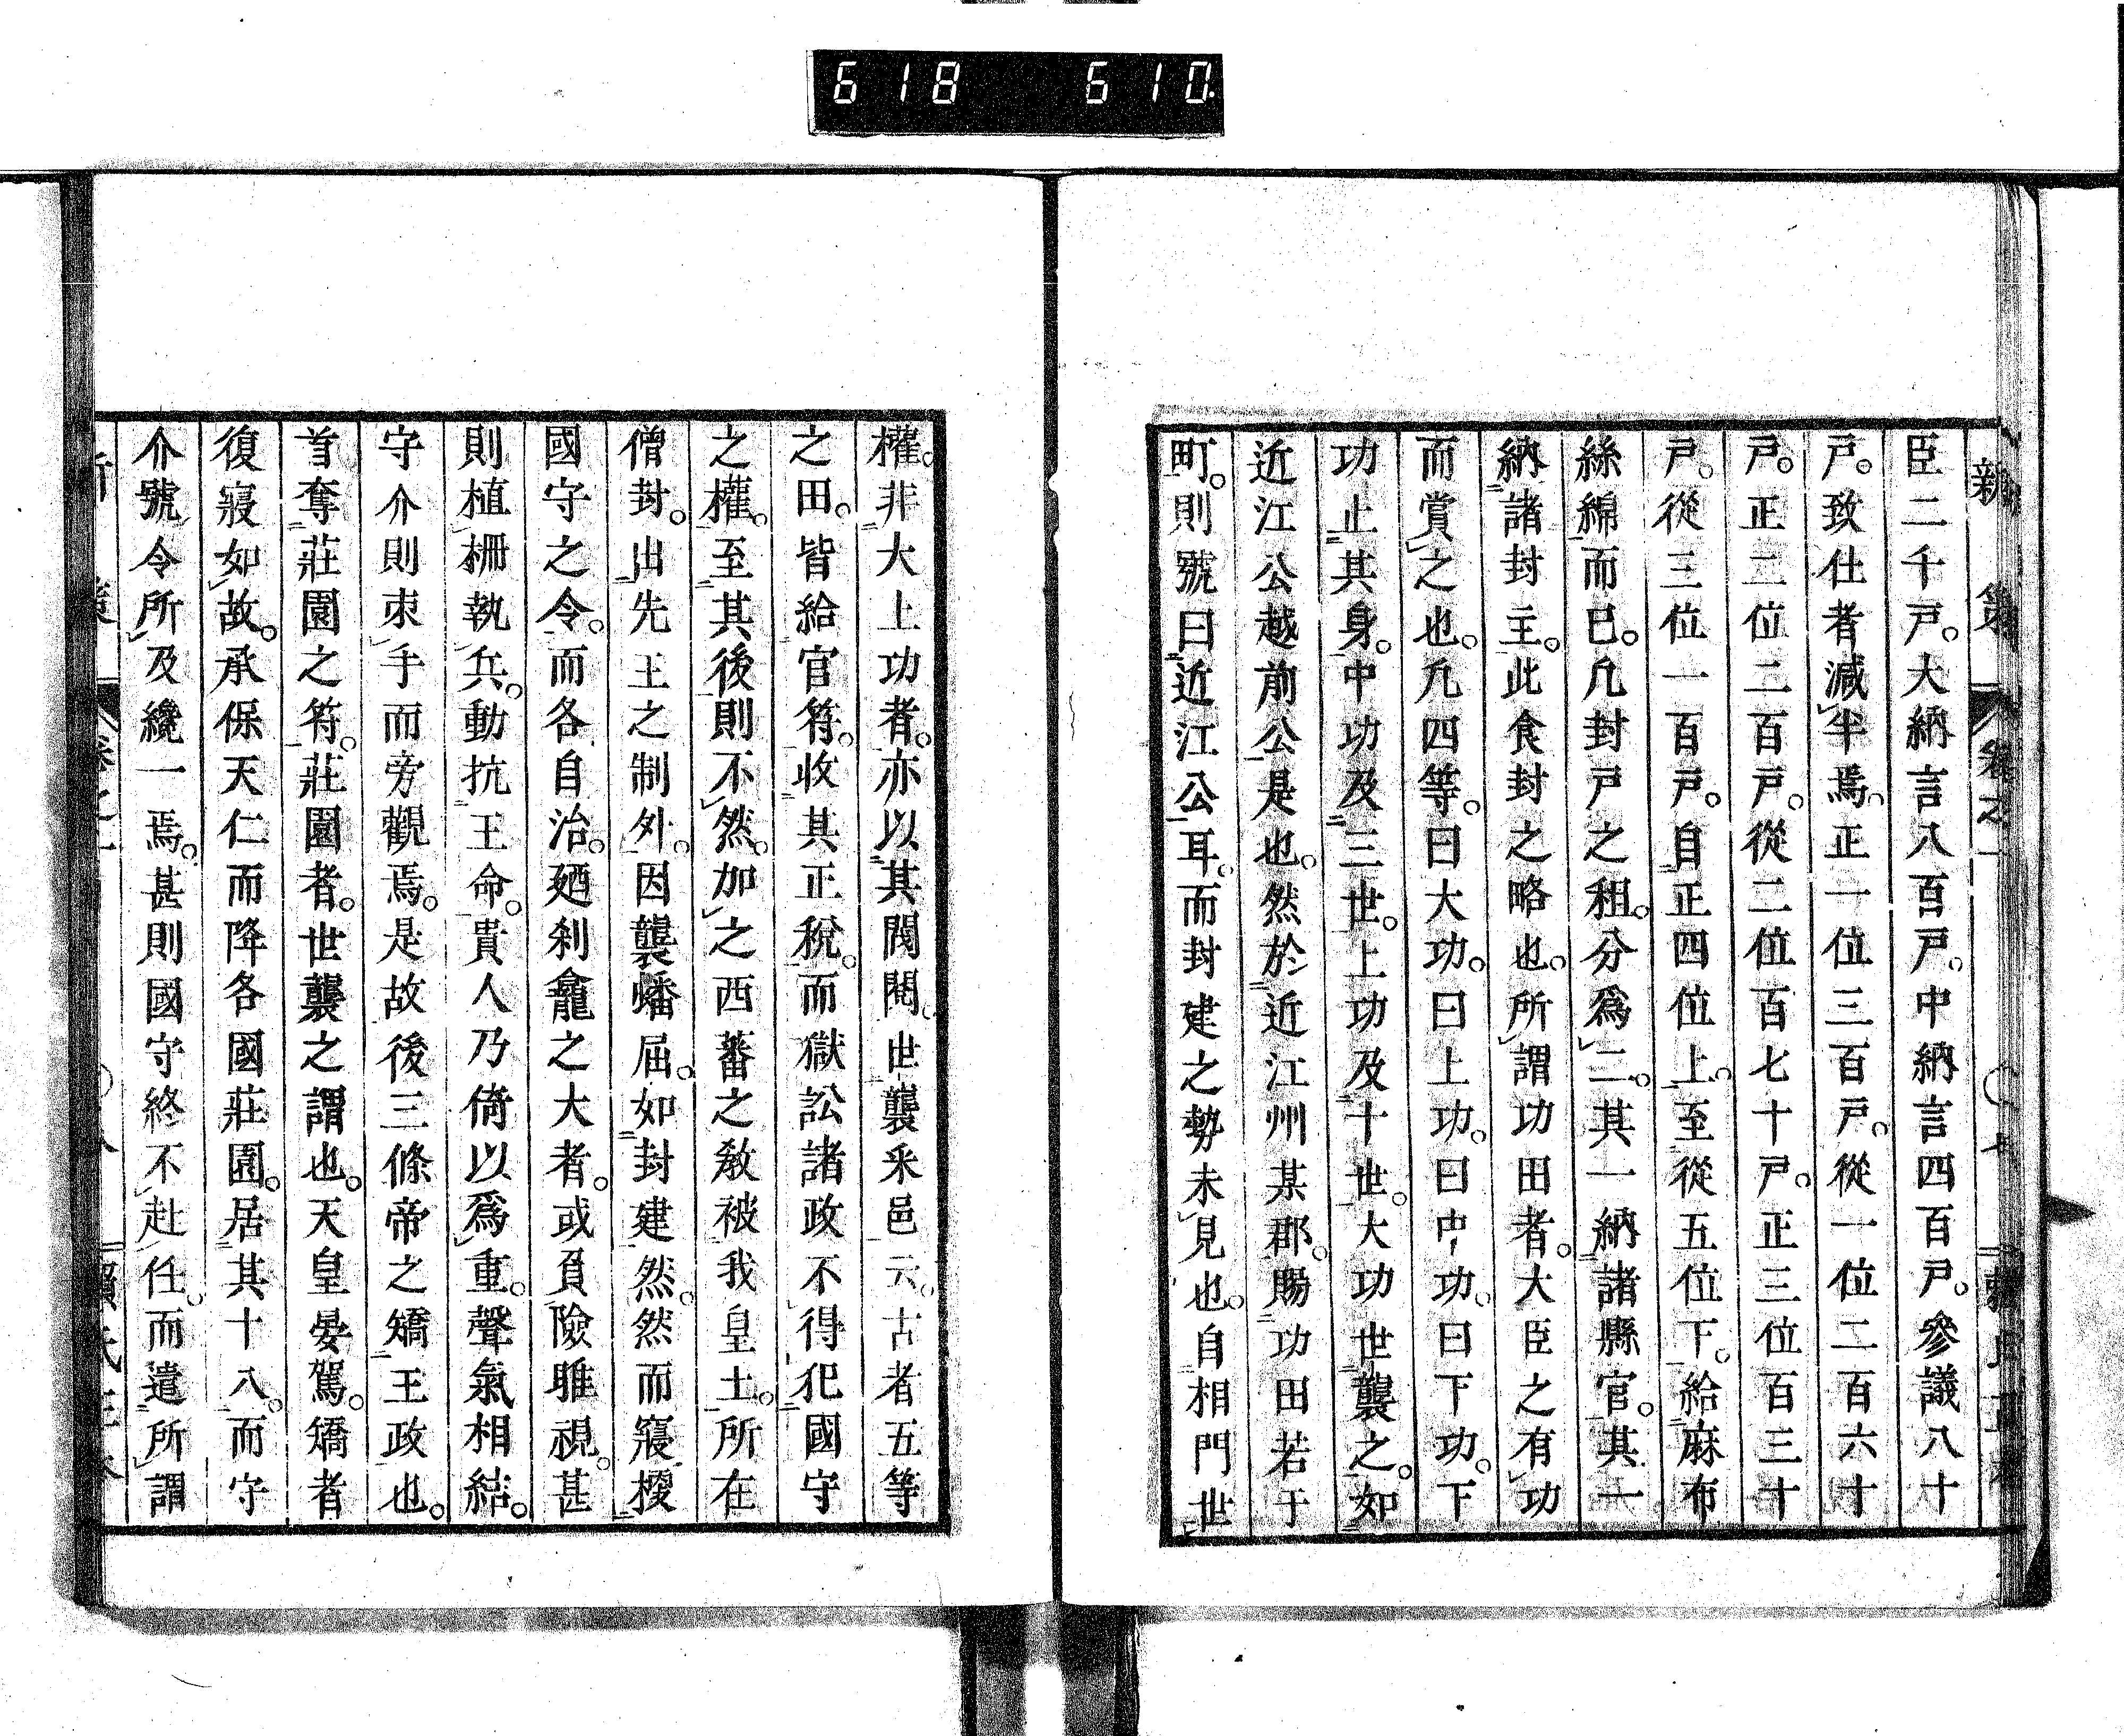 618 610
新策 卷之一 七
臣二千戸。大納言八百戸。中納言四百戸。參議八十
戸。致仕者減半焉。正一位三百戸。從一位二百六十
戸。正二位二百戸。從二位百七十戸。正三位百三十
戸。從三位一百戸。自正四位上。至從五位下。給麻布
絲綿而已。凡封戸之租。分爲二。其一納諸縣官。其一
納諸封主。此食封之略也。所謂功田者。大臣之有功
而賞之也。凡四等。曰大功。曰上功。曰中功。曰下功。下
功止其身。中功及三世。上功及十世。大功世襲之。如
近江公越前公是也。然於近江州某郡。賜功田若干
町。則號曰近江公耳。而封建之勢未見也。自相門世
權。非大上功者。亦以其閥閱。世襲釆邑云。古者五等
之田。皆給官符。收其正稅。而獄訟諸政不得犯國守
之權。至其後則不然。加之西蕃之敎被我皇土。所在
僧封。出先王之制外。因襲蟠屈。如封建然。然而寢授
國守之令。而各自治。廼刹龕之大者。或負險雄視。甚
則植柵執兵。動抗王命。貴人乃倚以爲重。聲氣相結。
守介則束手而旁觀焉。是故後三條帝之矯王政也。
首奪莊園之符。莊園者。世襲之謂也。天皇晏駕。矯者
復寢如故。承保天仁而降各國莊園。居其十八。而守
介號令所及纔一焉。甚則國守終不赴任。而遣所謂